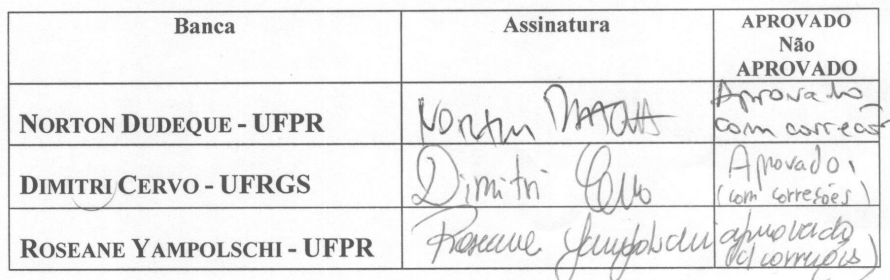 Banca Assinatura APROVADO
Não
APROVADO
NORTON DUDEQUE - UFPR Norton Aprovado
com correções
DIMITRI CERVO - UFRGS Dimitri Cervo Aprovado,
(com correções)
ROSEANE YAMPOLSCHI - UFPR Roseane Yampolschi aprovado
(c/ correções)